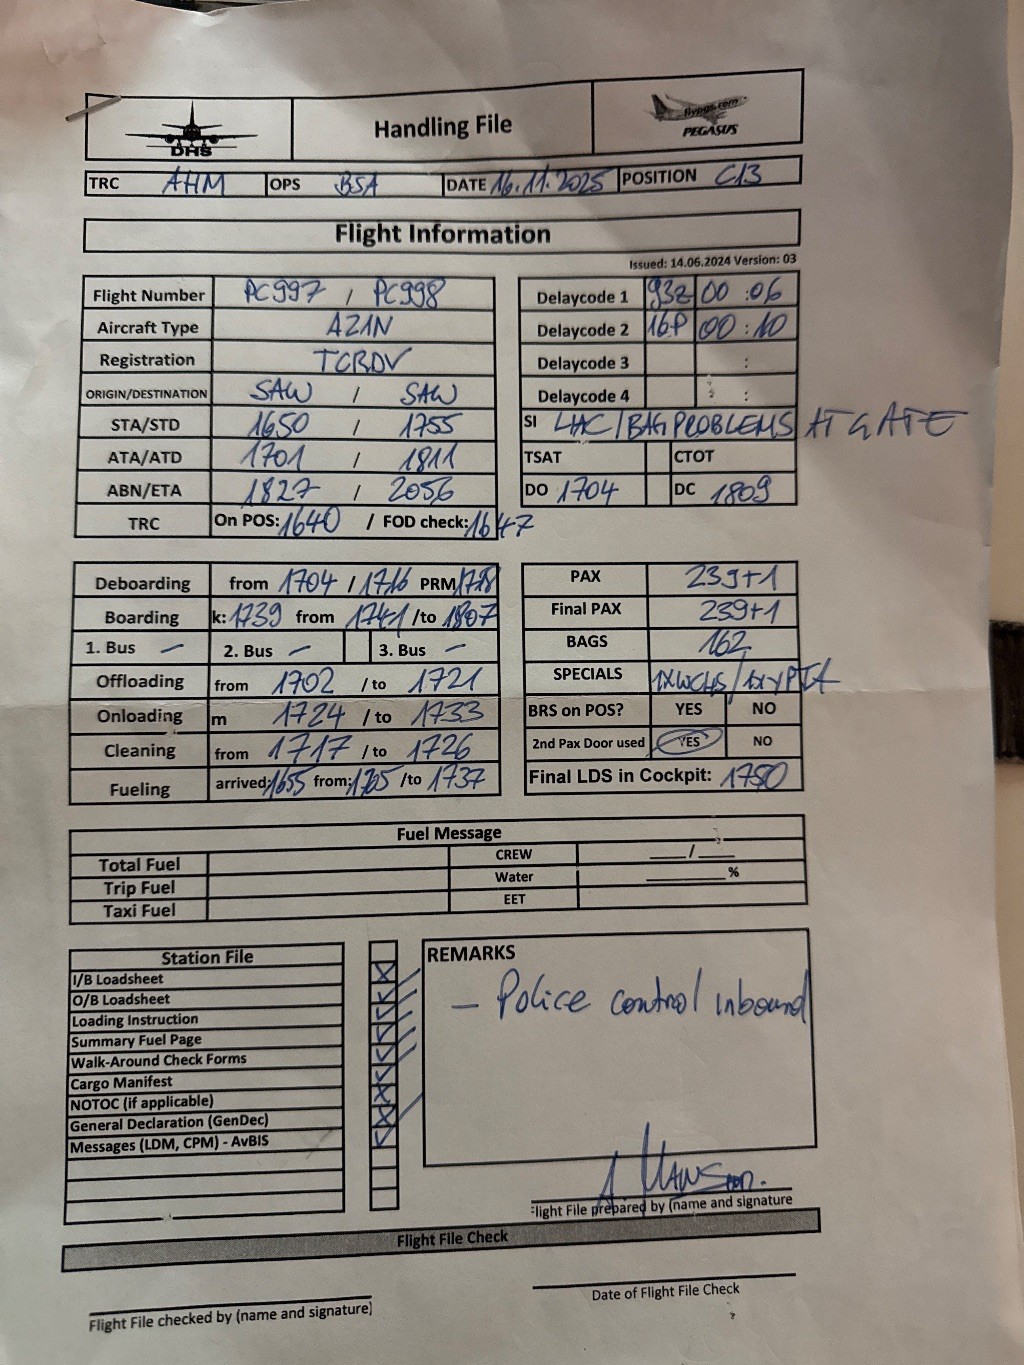 DHS
Handling File
flypgs.com
PEGASUS
TRC AHM OPS BSA DATE 16.11.2025 POSITION C13
Flight Information
Issued: 14.06.2024 Version: 03
Flight Number PC997 / PC998
Aircraft Type A21N
Registration TCRDV
ORIGIN/DESTINATION SAW / SAW
STA/STD 1650 / 1755
ATA/ATD 1701 / 1811
ABN/ETA 1827 / 2056
TRC On POS: 1640 / FOD check: 1647
Delaycode 1 93z 00 : 06
Delaycode 2 16P 00 : 10
Delaycode 3 :
Delaycode 4 :
SI LHC/BAG PROBLEMS AT GATE
TSAT CTOT
DO 1704 DC 1809
Deboarding from 1704 / 1716 PRM 1718
Boarding k: 1739 from 1741 /to 1807
1. Bus – 2. Bus – 3. Bus –
Offloading from 1702 /to 1721
Onloading m 1724 /to 1733
Cleaning from 1717 /to 1726
Fueling arrived: 1655 from: /to 1737
PAX 239+1
Final PAX 239+1
BAGS 162
SPECIALS 1XWCHS /
BRS on POS? YES NO
2nd Pax Door used YES NO
Final LDS in Cockpit: 1750
Fuel Message
Total Fuel CREW ___/___
Trip Fuel Water ______%
Taxi Fuel EET
Station File
I/B Loadsheet
O/B Loadsheet
Loading Instruction
Summary Fuel Page
Walk-Around Check Forms
Cargo Manifest
NOTOC (if applicable)
General Declaration (GenDec)
Messages (LDM, CPM) - AvBIS
REMARKS
– Police control inbound
Flight File prepared by (name and signature
Flight File Check
Flight File checked by (name and signature)
Date of Flight File Check